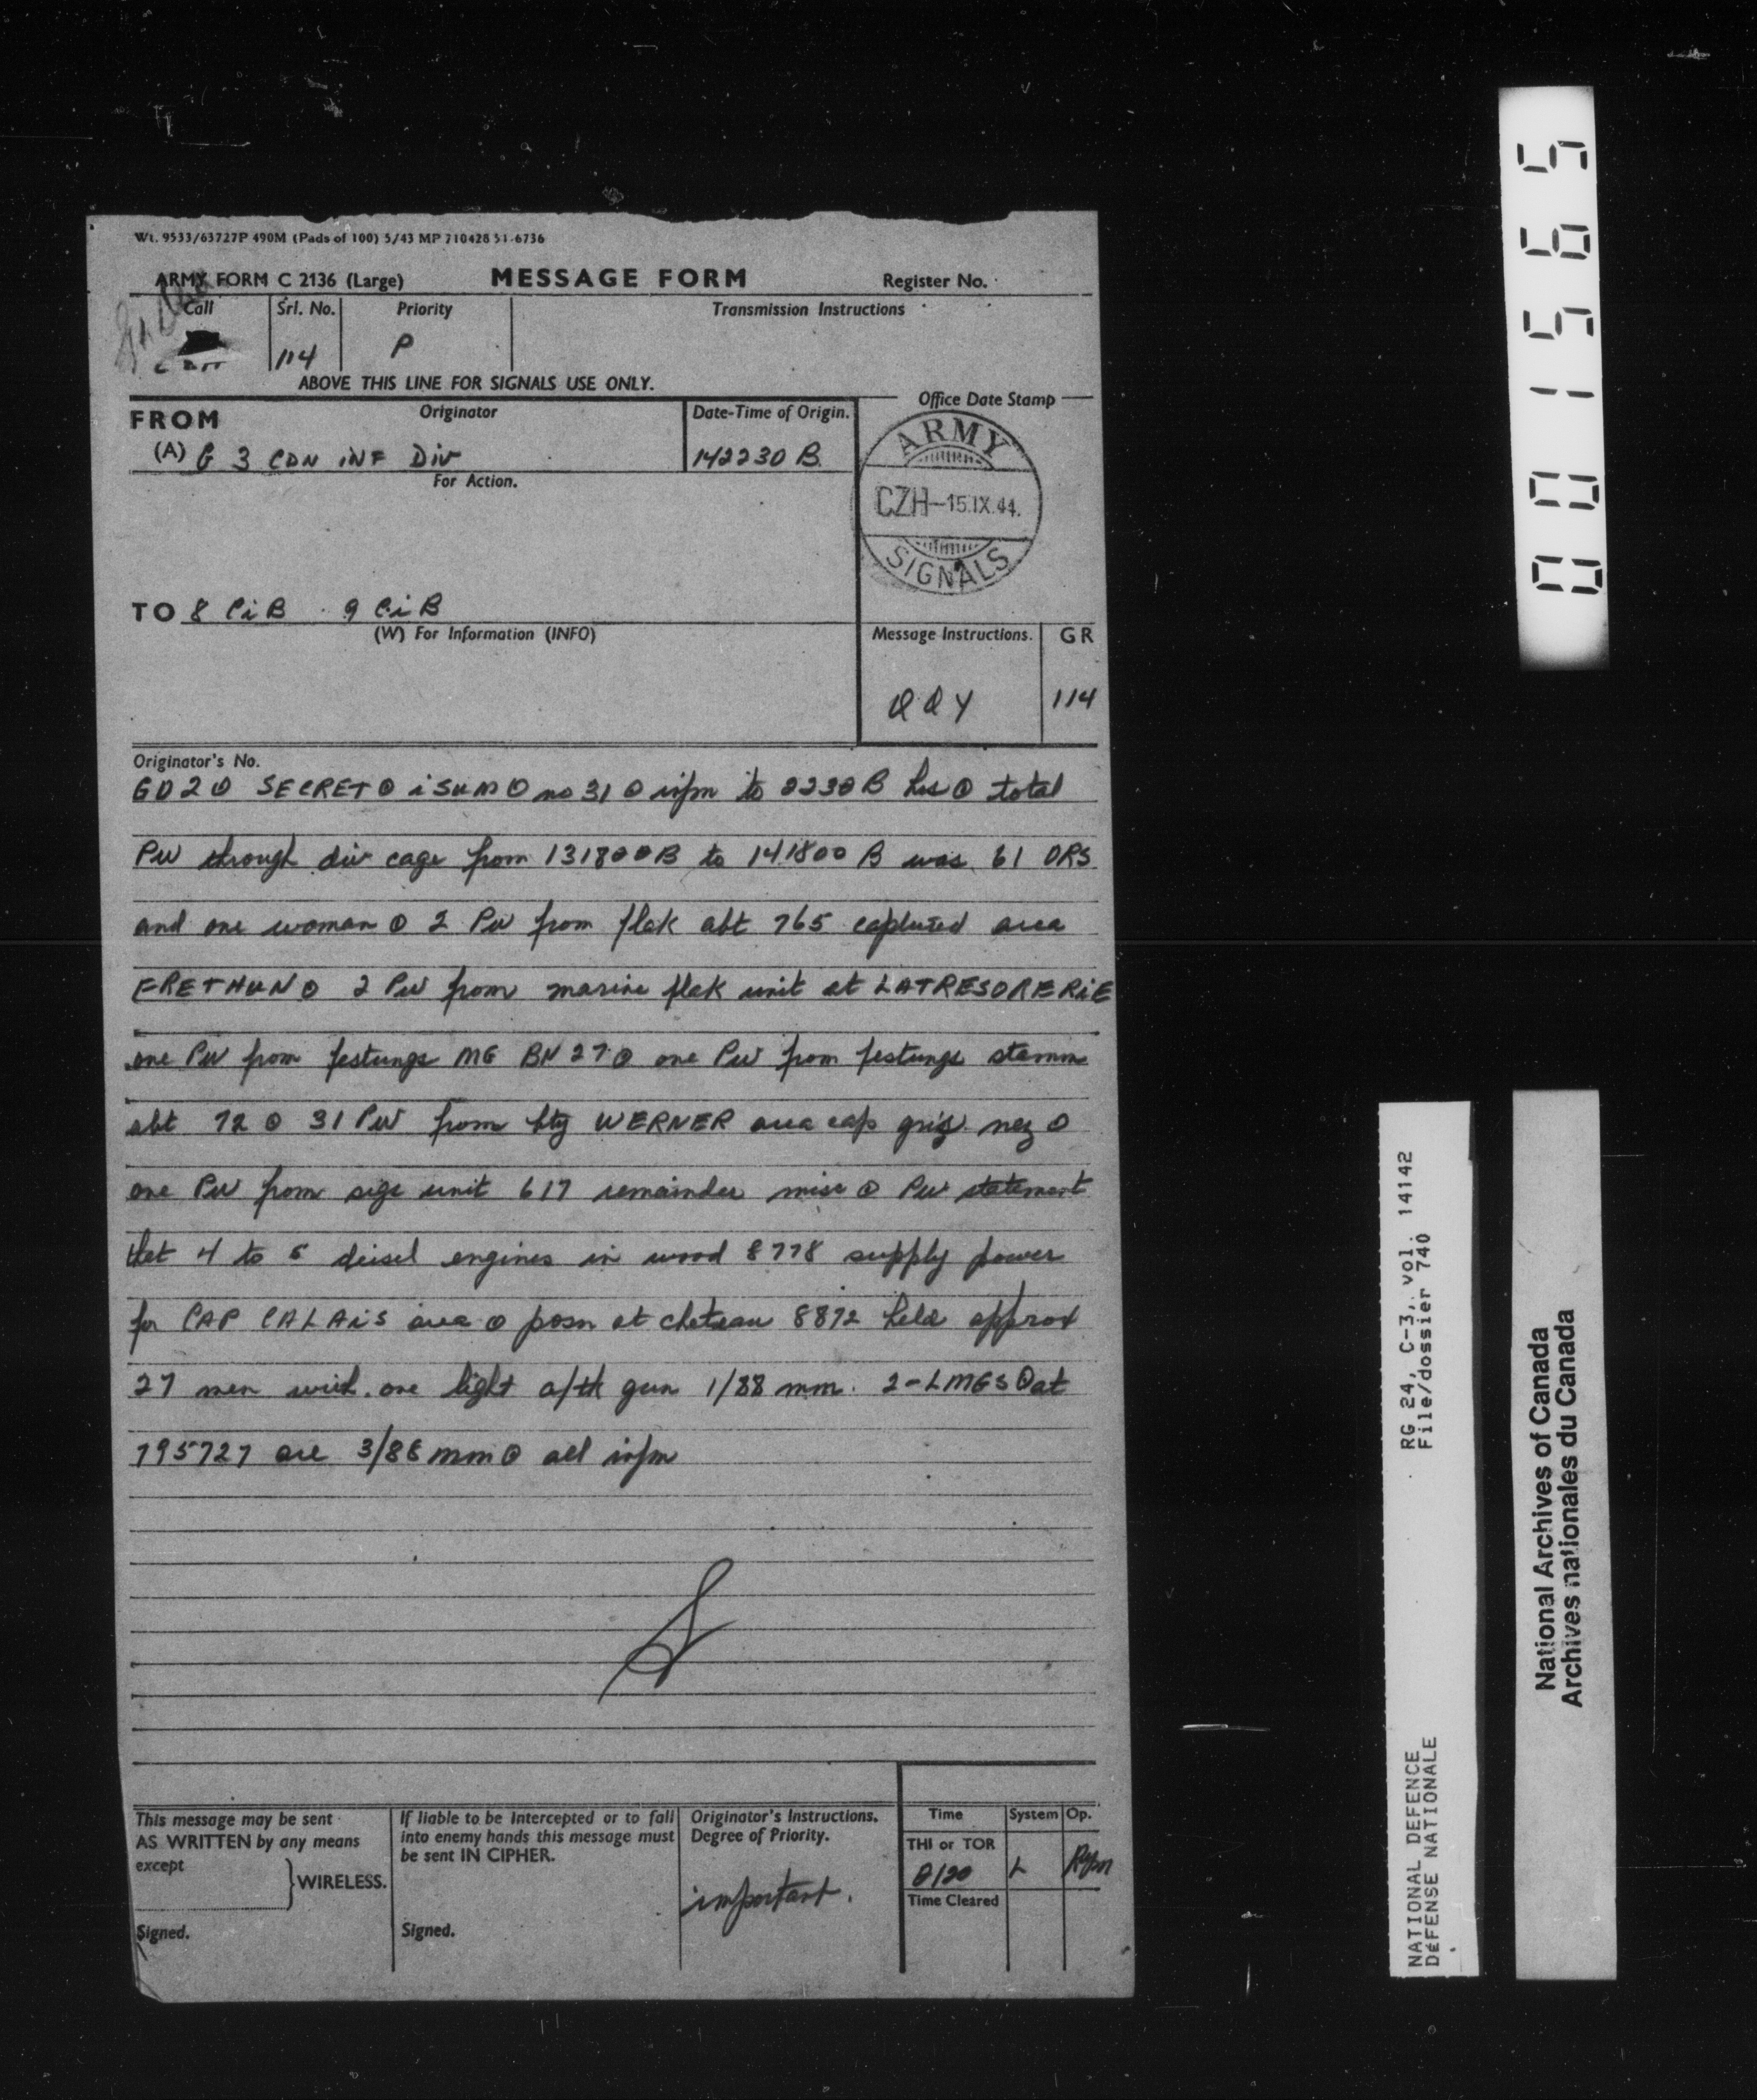 Wt. 9533/63727P 490M (Pads of 100) 5/43 MP 710428 51-6736
ARMY FORM C 2136 (Large) MESSAGE FORM Register No.
Call Srl. No. Priority Transmission Instructions
114 P
ABOVE THIS LINE FOR SIGNALS USE ONLY.
FROM Originator Date-Time of Origin. Office Date Stamp
(A) G 3 CDN iNF Div 142230 B
For Action.
ARMY
CZH-15.IX.44.
SIGNALS
TO 8 CiB 9 CiB
(W) For Information (INFO) Message Instructions. GR
QQY 114
Originator's No.
GD2 ⊙ SECRET ⊙ iSUM ⊙ no 31 ⊙ infm to 2230 B hrs ⊙ total
PW through div cage from 131800B to 141800 B was 61 ORS
and one woman ⊙ 2 PW from flak abt 765 captured area
FRETHUN ⊙ 2 PW from marine flak unit at LATRESORERiE
one PW from festungs MG BN 27 ⊙ one PW from festungs stamm
abt 72 ⊙ 31 PW from bty WERNER area cap gris nez ⊙
one PW from sigs unit 617 remainder misc ⊙ PW statement
that 4 to 5 deisel engines in wood 8778 supply power
for CAP CALAiS area ⊙ posn at chateau 8872 held approx
27 men with one light a/tk gun 1/88 mm. 2-LMGS ⊙ at
795727 are 3/88 mm ⊙ all infm
This message may be sent AS WRITTEN by any means except WIRELESS.
Signed.
If liable to be intercepted or to fall into enemy hands this message must be sent IN CIPHER.
Signed.
Originator's Instructions. Degree of Priority.
important.
Time System Op.
THI or TOR
0120 L
Time Cleared
001565
RG 24, C-3, vol. 14142
File/dossier 740
NATIONAL DEFENCE
DÉFENSE NATIONALE
National Archives of Canada
Archives nationales du Canada